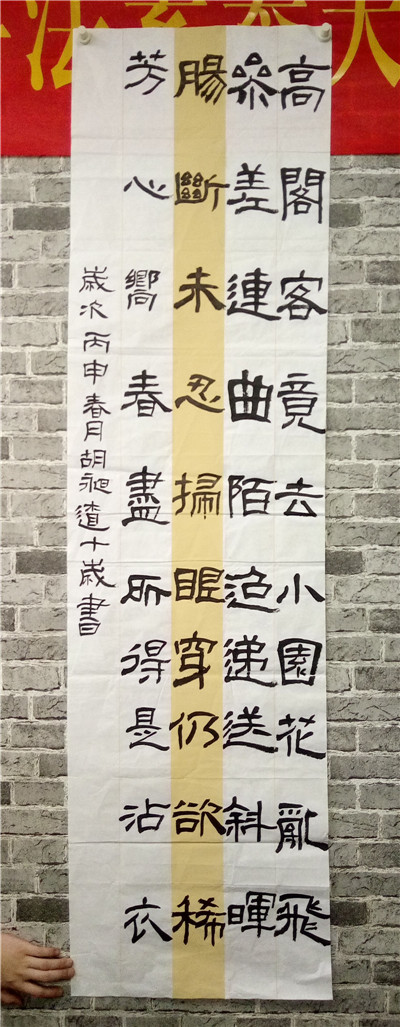 法素养
高閣客竟去小園花亂飛
參差連曲陌迢遞送斜暉
腸斷未忍掃眼穿仍欲稀
芳心嚮春盡所得是沾衣
歲次丙申春月胡昶十歲書